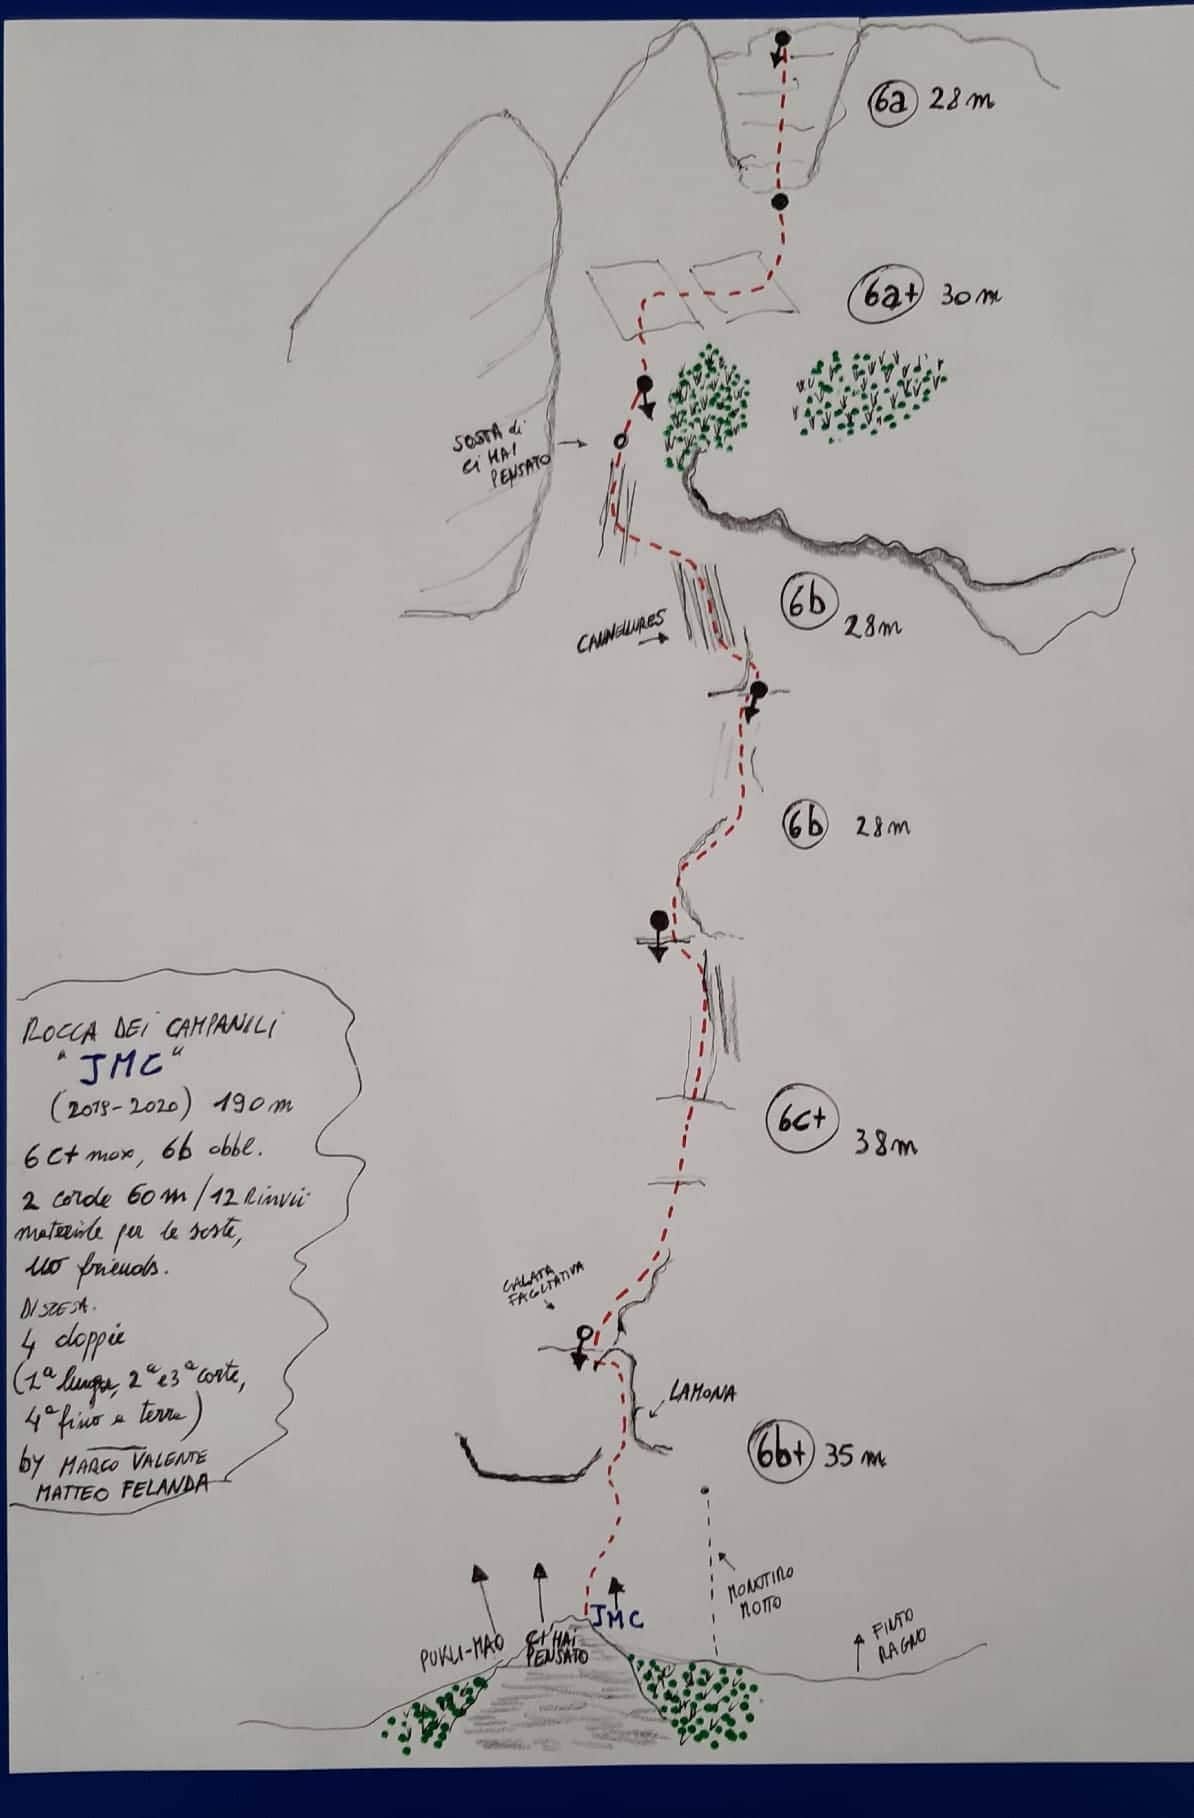 6a 28m
6a+ 30m
SOSTA di
Ci HAI
PENSATO
6b
28m
CANNELLURES
6b 28m
6c+
38m
CALATA
FACOLTATIVA
LAMONA
6b+ 35m
MONOTIRO
MOTTO
FINTO
RAGNO
JMC
PUKLI-MAO
Ci HAi
PENSATO
ROCCA DEi CAMPANiLi
"JMC"
(2019-2020) 190m
6c+ max, 6b obbl.
2 corde 60m/12 Rinvii
materiale per le soste,
no friends.
DISCESA.
4 doppie
(1ª lunga, 2ª e 3ª corte,
4ª fino a terra)
by MARCO VALENTE
MATTEO FELANDA